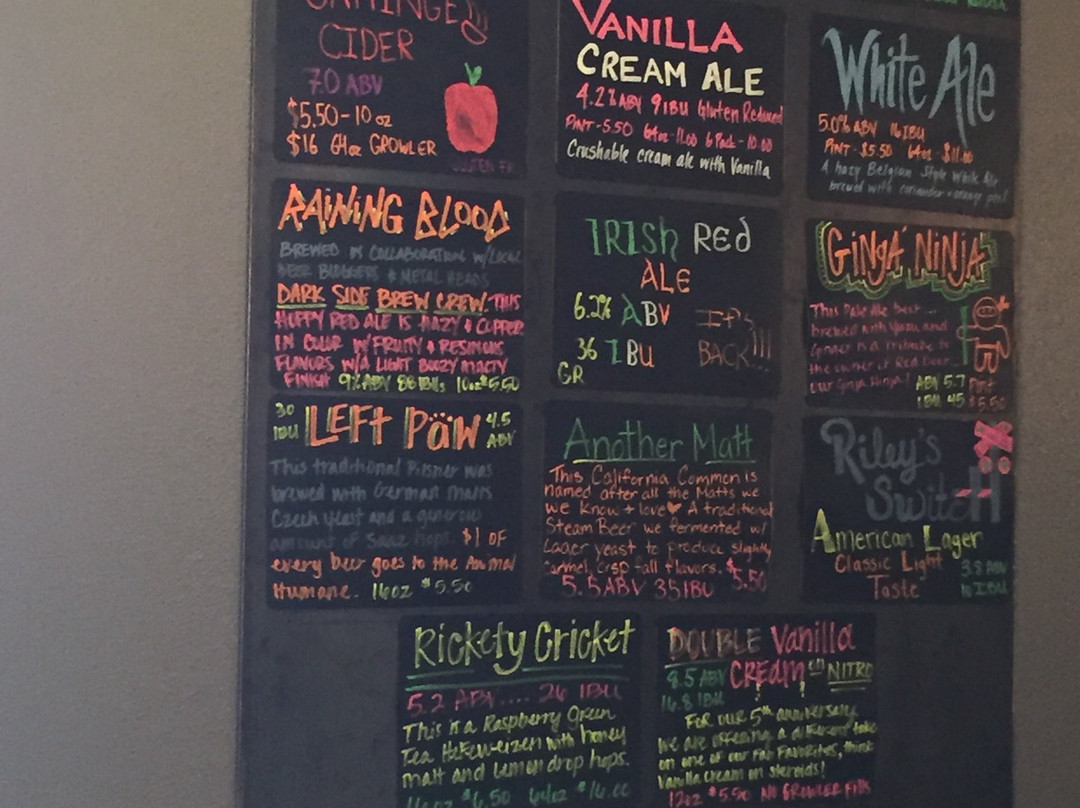 CIDER
7.0 ABV
$5.50-10 oz
$16 64oz GROWLER
VANILLA
CREAM ALE
4.2% ABV 9 IBU Gluten Reduced
PINT-5.50 64oz-11.00 6 Pack-10.00
Crushable cream ale with Vanilla
White Ale
5.0% ABV 16 IBU
PINT-$5.50 64oz-$11.00
A hazy Belgian Style White Ale
brewed with coriander + orange peel
RAINING BLOOD
BREWED IN COLLABORATION W/LOCAL
BEER BLOGGERS & METAL HEADS
DARK SIDE BREW CREW. THIS
HOPPY RED ALE IS HAZY & COPPER
IN COLOR W/FRUITY & RESINOUS
FLAVORS W/A LIGHT BOOZY MALTY
FINISH 9% ABV 88 IBUs 10oz $5.50
IRISh REd
ALE
6.2% ABV
36 IBU
GR
IT'S
BACK!!!
GINGA' NINJA
This Pale Ale beer...
brewed with Yuzu and
Ginger is a tribute to
the owner of Red Door...
our Ginja Ninja!
ABV 5.7 Pint
IBU 45 $5.50
30
IBU
LEFT PÄW
4.5
ABV
This traditional Pilsner was
brewed with German malts
Czech yeast and a generous
amount of Saaz hops. $1 OF
every beer goes to the Animal
Humane. 16oz $5.50
Another Matt
This California Common is
named after all the Matts we
we know + love♥ A traditional
Steam Beer we fermented w/
Lager yeast to produce slightly
carmel, crisp fall flavors. $5.50
5.5 ABV 35 IBU
Riley's
Switch
American Lager
Classic Light
Taste
3.8 ABV
IBU
Rickety Cricket
5.2 ABV.... 26 IBU
This is a Raspberry Green
Tea Hefeweizen with honey
malt and Lemon drop hops.
16oz $6.50 64oz $16.00
DOUBLE Vanilla
CREam on NITRO
8.5 ABV
16.8 IBU
For our 5th anniversary
we are offering a different take
on one of our Fab Favorites, think
Vanilla cream on steroids!
12oz $5.50 NO GROWLER FILLS